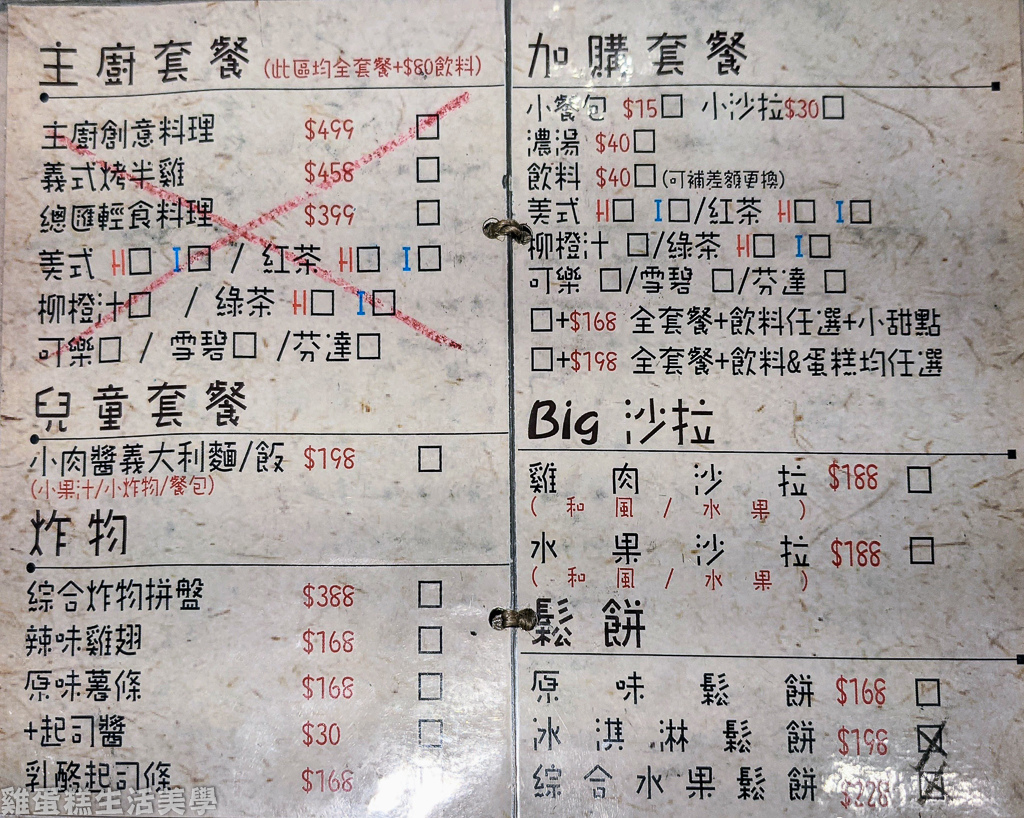 主廚套餐(此區均全套餐+$80飲料)
主廚創意料理 $499 □
義式烤半雞 $458 □
總匯輕食料理 $399 □
美式 H□ I□ / 紅茶 H□ I□
柳橙汁□ / 綠茶 H□ I□
可樂□ / 雪碧□ /芬達□
兒童套餐
小肉醬義大利麵/飯 $198 □
(小果汁/小炸物/餐包)
炸物
綜合炸物拼盤 $388 □
辣味雞翅 $168 □
原味薯條 $168 □
+起司醬 $30 □
乳酪起司條 $168 □
加購套餐
小餐包 $15□ 小沙拉$30□
濃湯 $40□
飲料 $40□(可補差額更換)
美式 H□ I□/紅茶 H□ I□
柳橙汁 □/綠茶 H□ I□
可樂 □/雪碧 □/芬達 □
□+$168 全套餐+飲料任選+小甜點
□+$198 全套餐+飲料&蛋糕均任選
Big 沙拉
雞肉沙拉 $188 □
(和風/水果)
水果沙拉 $188 □
(和風/水果)
鬆餅
原味鬆餅 $168 □
冰淇淋鬆餅 $198 ☒
綜合水果鬆餅 $228 ☒
雞蛋糕生活美學